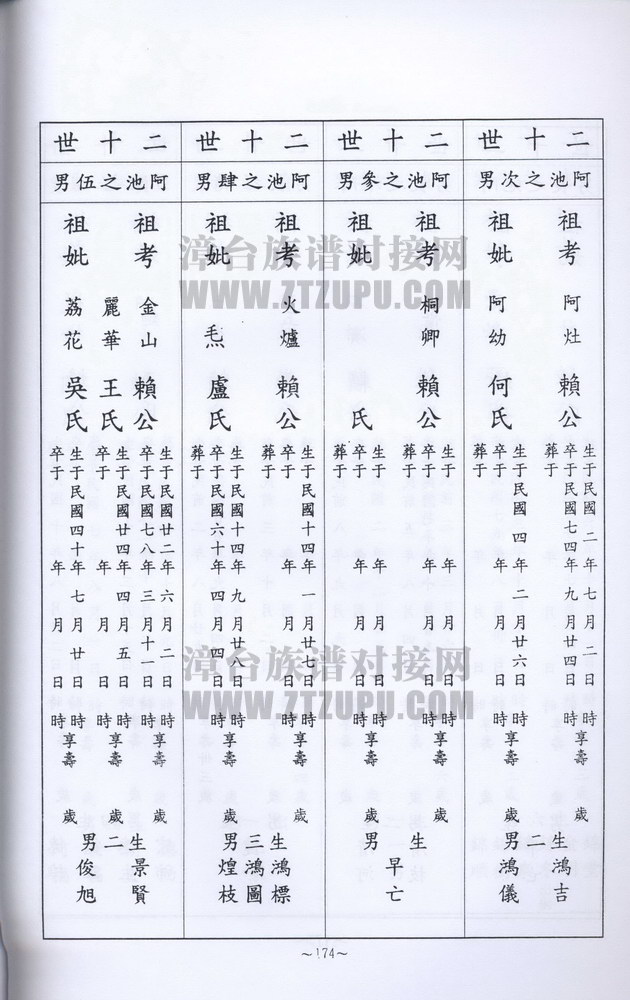 二十世
阿池之次男
祖考 阿灶 賴公
生于民國 二年 七月 二日 時享壽 歲
卒于民國七四年 九月廿四日
祖妣 阿幼 何氏
生于民國 四年 二月廿六日 時享壽 歲
卒于 年 月 日
葬于
生二男 鴻吉 鴻儀
二十世
阿池之參男
祖考 桐卿 賴公
生于 年 月 日 時享壽 歲
卒于 年 月 日
葬于
祖妣 氏
生于 年 月 日 時享壽 歲
卒于 年 月 日
葬于
生 男 早亡
二十世
阿池之肆男
祖考 火爐 賴公
生于民國十四年 一月廿七日 時享壽 歲
卒于 年 月 日
葬于
祖妣 盧氏
生于民國十四年 九月廿八日 時享壽 歲
卒于民國六十年 四月 四日
葬于
生三男 鴻標 鴻圖 煌枝
二十世
阿池之伍男
祖考 金山 賴公
生于民國廿二年 六月 二日 時享壽 歲
卒于民國七八年 三月十一日
麗華 王氏
生于民國廿四年 四月 五日 時享壽 歲
卒于 年 月 日
祖妣 荔花 吳氏
生于民國四十年 七月廿一日 時享壽 歲
卒于 年 月 日
生二男 景賢 俊旭
~174~
漳台族谱对接网
WWW.ZTZUPU.COM
漳台族谱对接网
WWW.ZTZUPU.COM